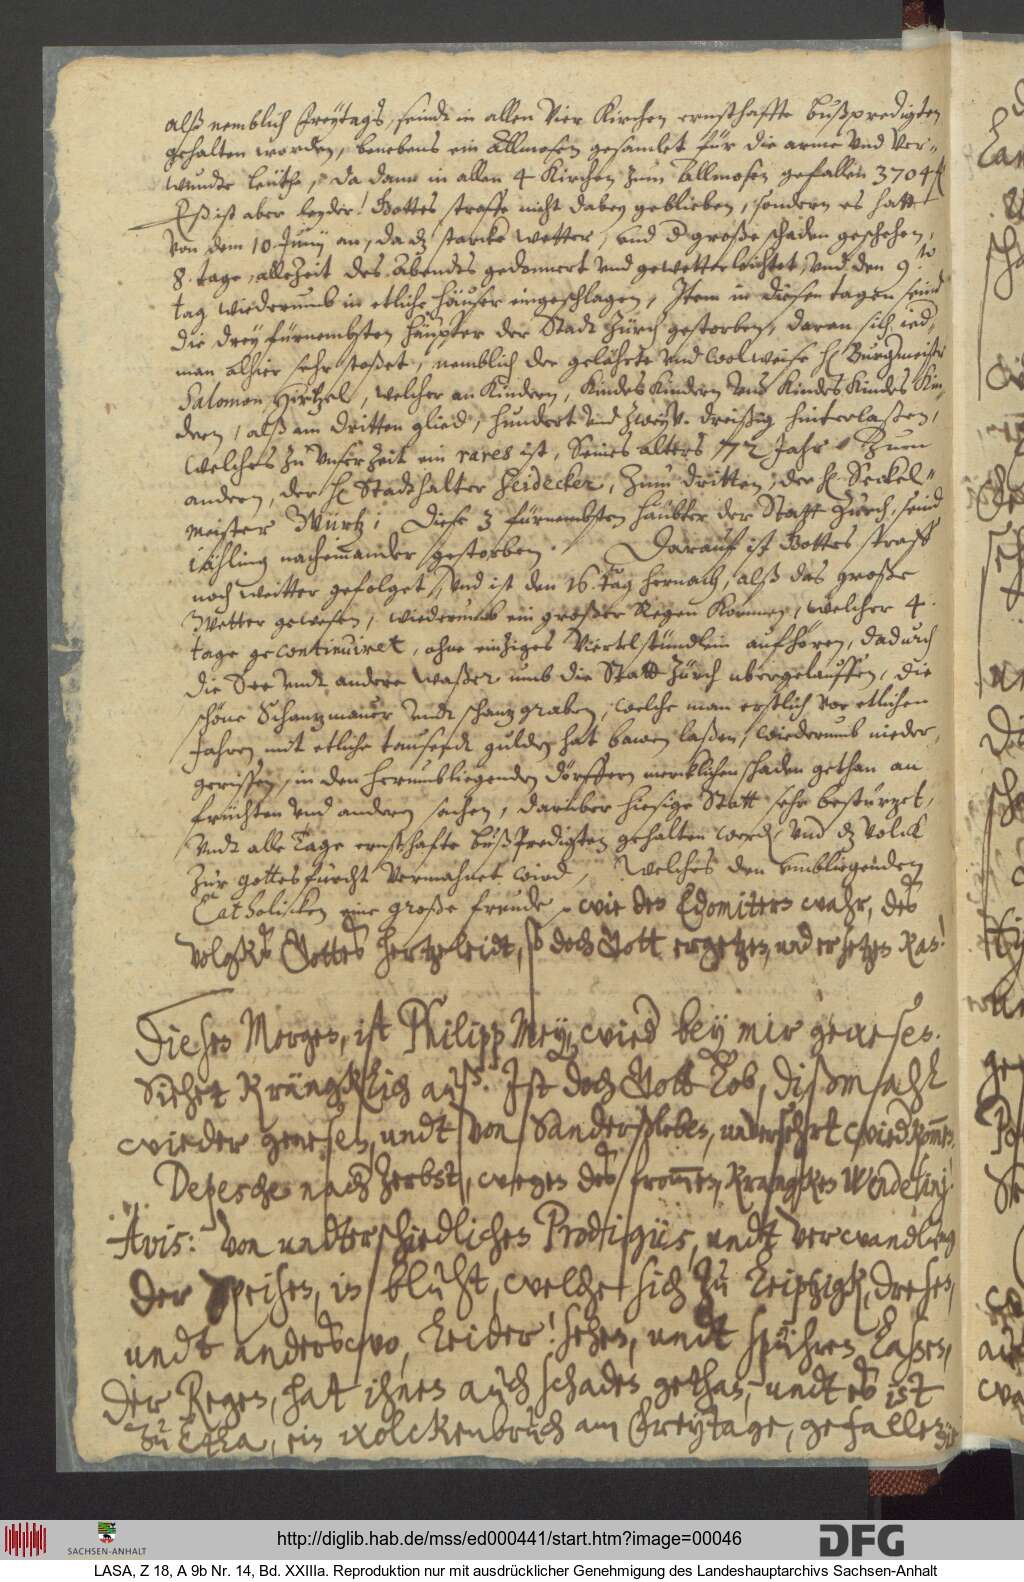 alß nemblich freÿtags, seindt in allen Vier Kirchen ernsthaffte bußpredigten
gehalten worden, benebens ein Allmosen gesamlet für die arme und Ver-
wundte leüthe, da dann in allen 4 Kirchen zum Allmosen gefallen 3704 fl
Eß ist aber leyder! Gottes straffe nicht dabey geblieben, sondern es hatt
Von dem 10. Junÿ an, da dz starcke wetter, und d große schaden geschehen,
8. tage, allezeit des Abendts gedonnert und gewetterleichtet, und den 9. tn
tag wiederumb in etliche häuser eingeschlagen, Item in diesen tagen seind
die dreÿ fürnembsten häupter der Stadt Zürch gestorben, daran sich ied-
man alhier sehr stoßet, nemblich der gelährte und wolweise H. Burgmeister
Salomon Hirtzel, welcher an Kindern, Kindes Kindern und Kindes Kindes Kin-
dern, alß am dritten glied, hundert und zweÿ u. dreißig hinterlaßen,
welches zu unser Zeit ein rares ist, seines alters 72 Jahr. Zum
andern, der H. Stadthalter Heidecker, Zum dritten, der H. Seckel-
meister Würtz; Diese 3 fürnembsten häubter der Statt Zürch, seind
iähling nacheinander gestorben. Darauf ist Gottes straff
noch weitter gefolget, Und ist den 16. tag hernach, alß das große
Wetter gewesen, wiederumb ein großer Regen Kommen, welcher 4.
tage gecontinuiret, ohne einziges Viertelstündlein aufhören, dadurch
die See undt andere waßer umb die Statt Zürch ubergelauffen, die
schöne Schantzmauer undt schantzgraben, welche man erstlich vor etlichen
Jahren mit etliche tausendt gulden hat bawen laßen, wiederumb nieder-
gerissen, in den herumbliegenden dörffern mercklichen schaden gethan an
früchten und andern sachen, darüber hiesige Statt sehr bestürzet,
Undt alle Tage ernsthafte bußpredigten gehalten werd, und dz Volck
zur gottesfurcht Vermahnet wird, Welches den umbliegenden
Catholischen eine große freude, wie den Edomitern wahr, des
volgks Gottes hertzeleidt, so doch Gott ergetzen, und ersetzen kan!
Diesen Morgen, ist Philipp Meÿ, wied bey mir gewesen.
Siehet kränglich auß. Ist doch Gott Lob, dißmahl
wieder genesen, undt von Sanderßleben, unversehrt wied kommen.
Depesche nach Zerbst, wegen des frommen, krangken Wendelinj.
Avis: Von undterschiedlichen Prodigiis, undt verwandlung
der Speisen, in bluht, welche sich zu Leiptzigk, dresen,
undt anderßwo, Leider! sehen, undt spühren laßen,
Der Regen, hat ihnen auch schaden gethan, undt es ist
zu, ein wolckenbruch am Freytage, gefallen
http://diglib.hab.de/mss/ed000441/start.htm?image=00046
SACHSEN-ANHALT
DFG
LASA, Z 18, A 9b Nr. 14, Bd. XXIIIa. Reproduktion nur mit ausdrücklicher Genehmigung des Landeshauptarchivs Sachsen-Anhalt